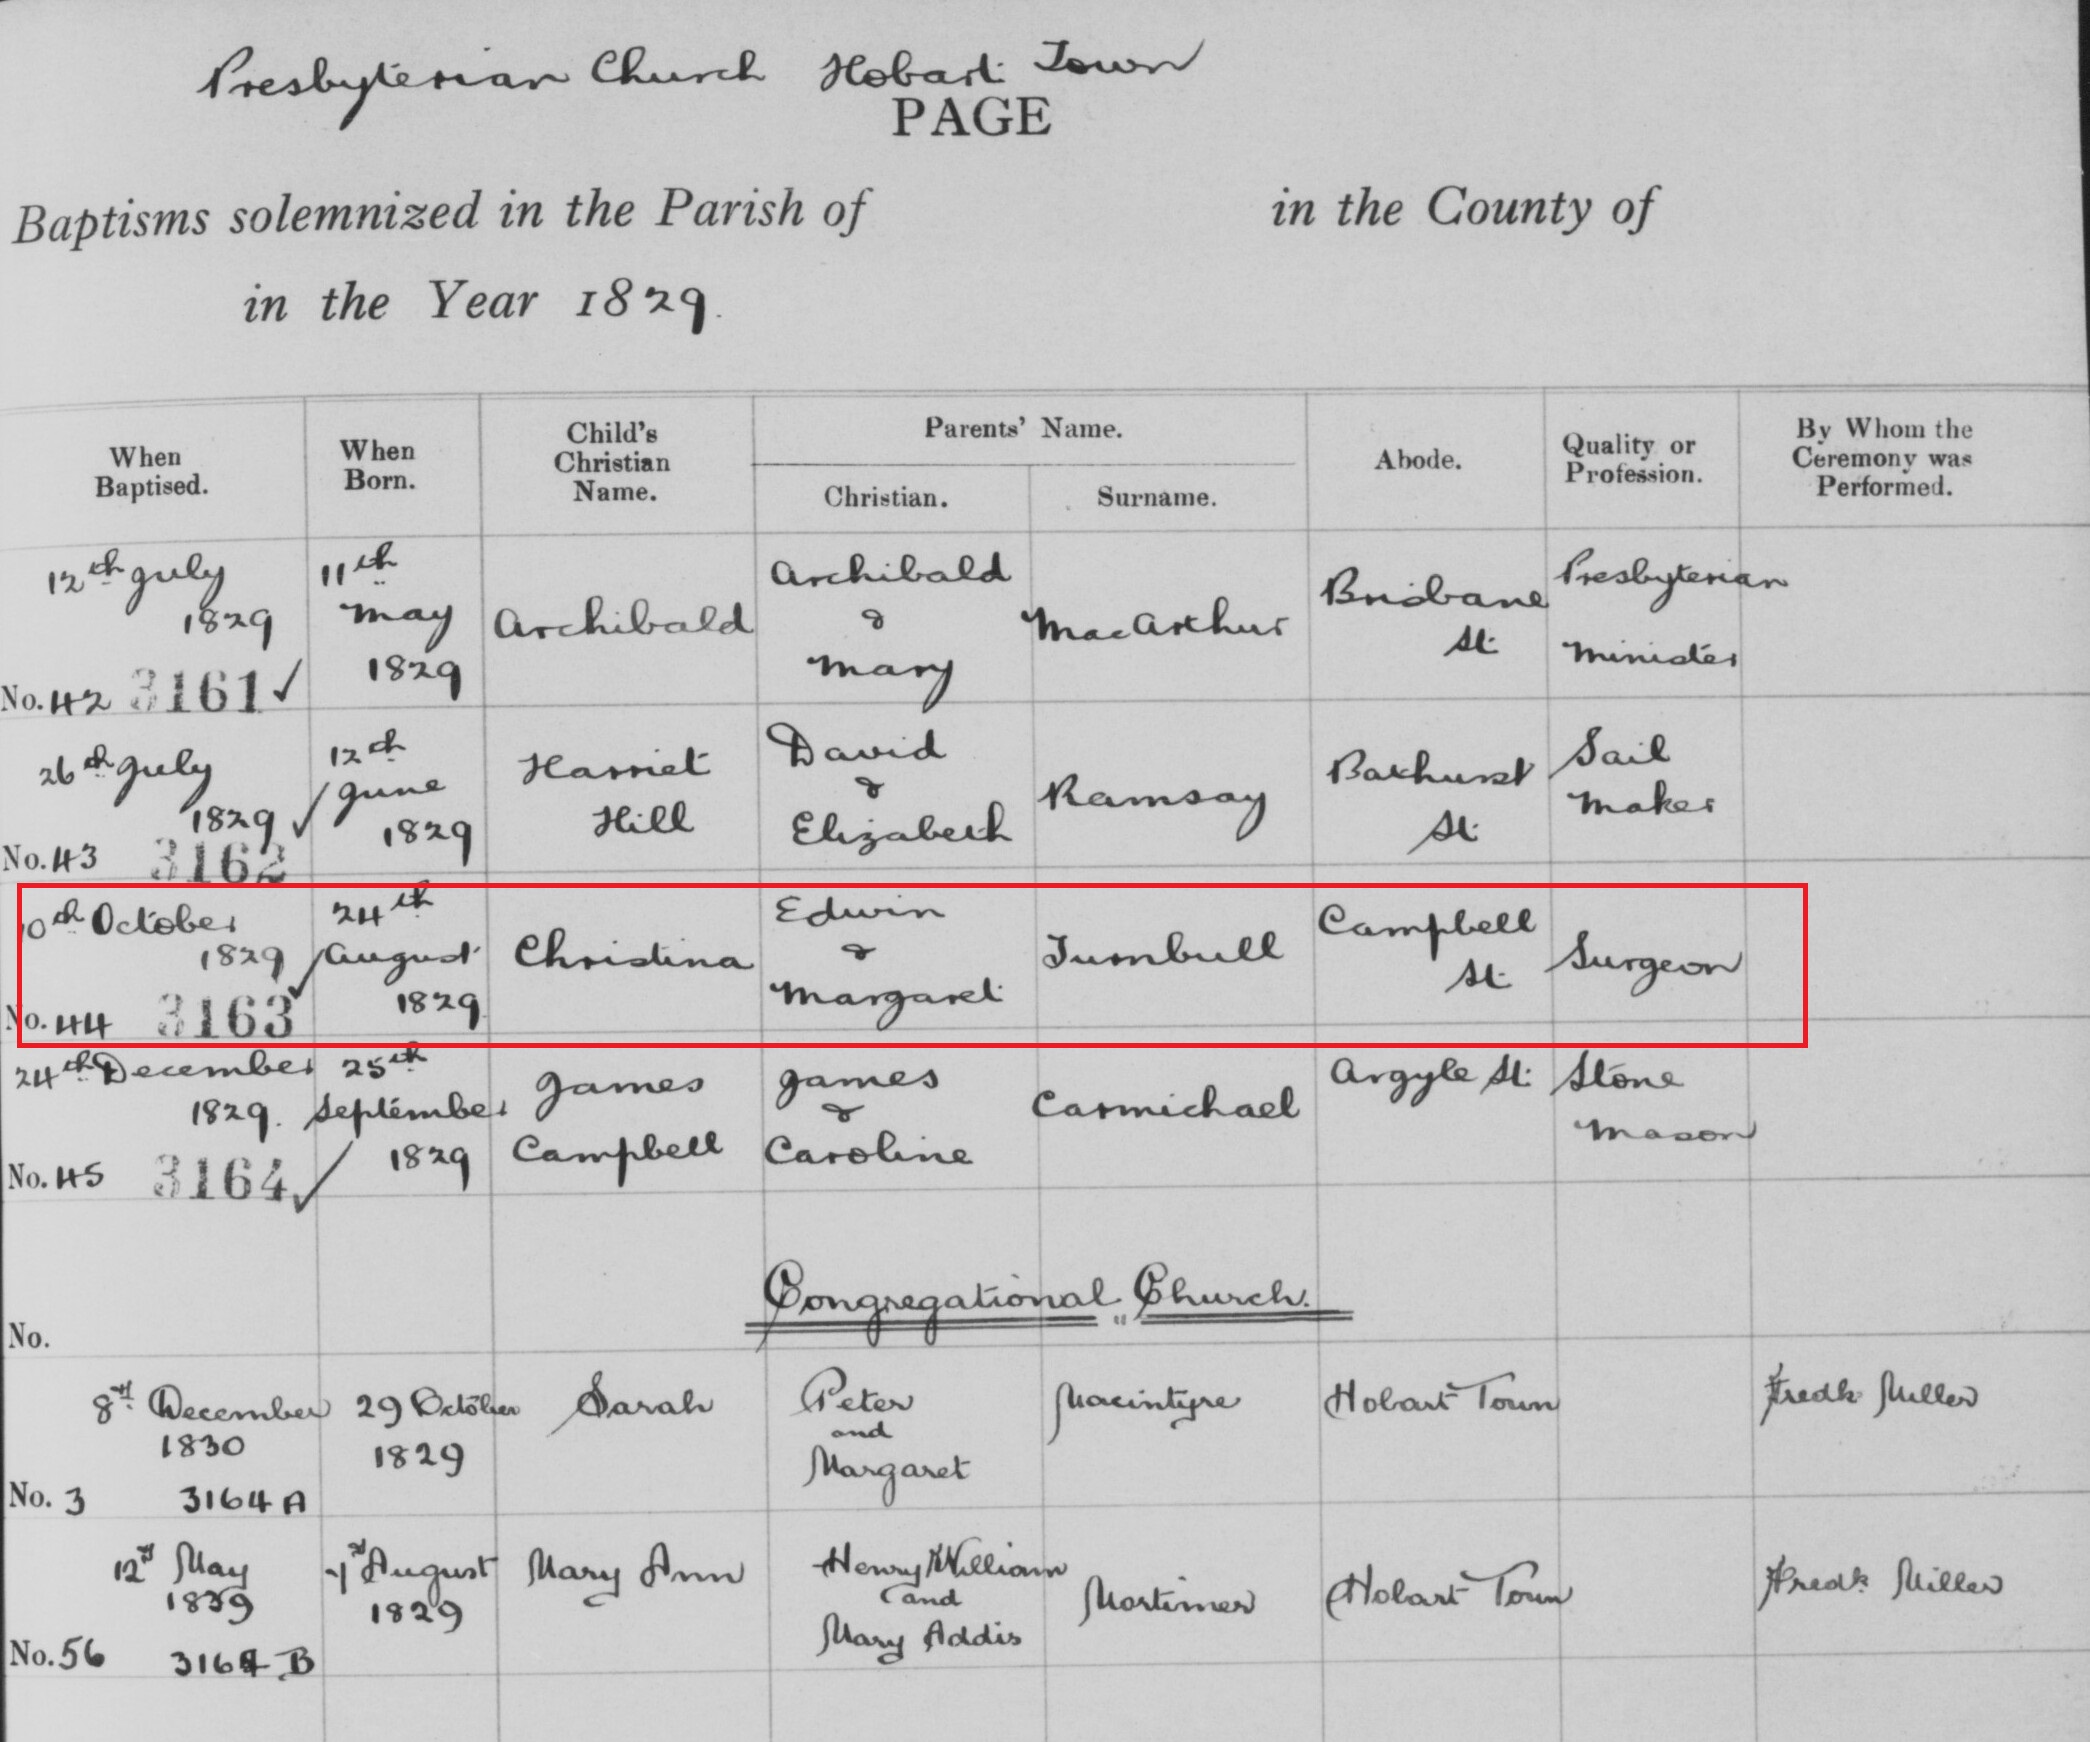 Presbyterian Church Hobart Town
PAGE
Baptisms solemnized in the Parish of in the County of
in the Year 1829.
When Baptised. When Born. Child's Christian Name. Parents' Name. Christian. Surname. Abode. Quality or Profession. By Whom the Ceremony was Performed.
12th July 1829 No. 42 3161 ✓ 11th May 1829 Archibald Archibald & Mary MacArthur Brisbane St. Presbyterian Minister
26th July 1829 ✓ No. 43 3162 12th June 1829 Harriet Hill David & Elizabeth Ramsay Bathurst St. Sail Maker
10th October 1829 ✓ No. 44 3163 24th August 1829 Christina Edwin & Margaret Turnbull Campbell St. Surgeon
24th December 1829. No. 45 3164 ✓ 25th September 1829 James Campbell James & Caroline Carmichael Argyle St. Stone Mason
Congregational Church.
No.
8th December 1830 No. 3 3164 A 29 October 1829 Sarah Peter and Margaret Macintyre Hobart Town Fredk Miller
12th May 1839 No. 56 3164 B August 1829 Mary Ann Henry William and Mary Addis Mortimer Hobart Town Fredk Miller